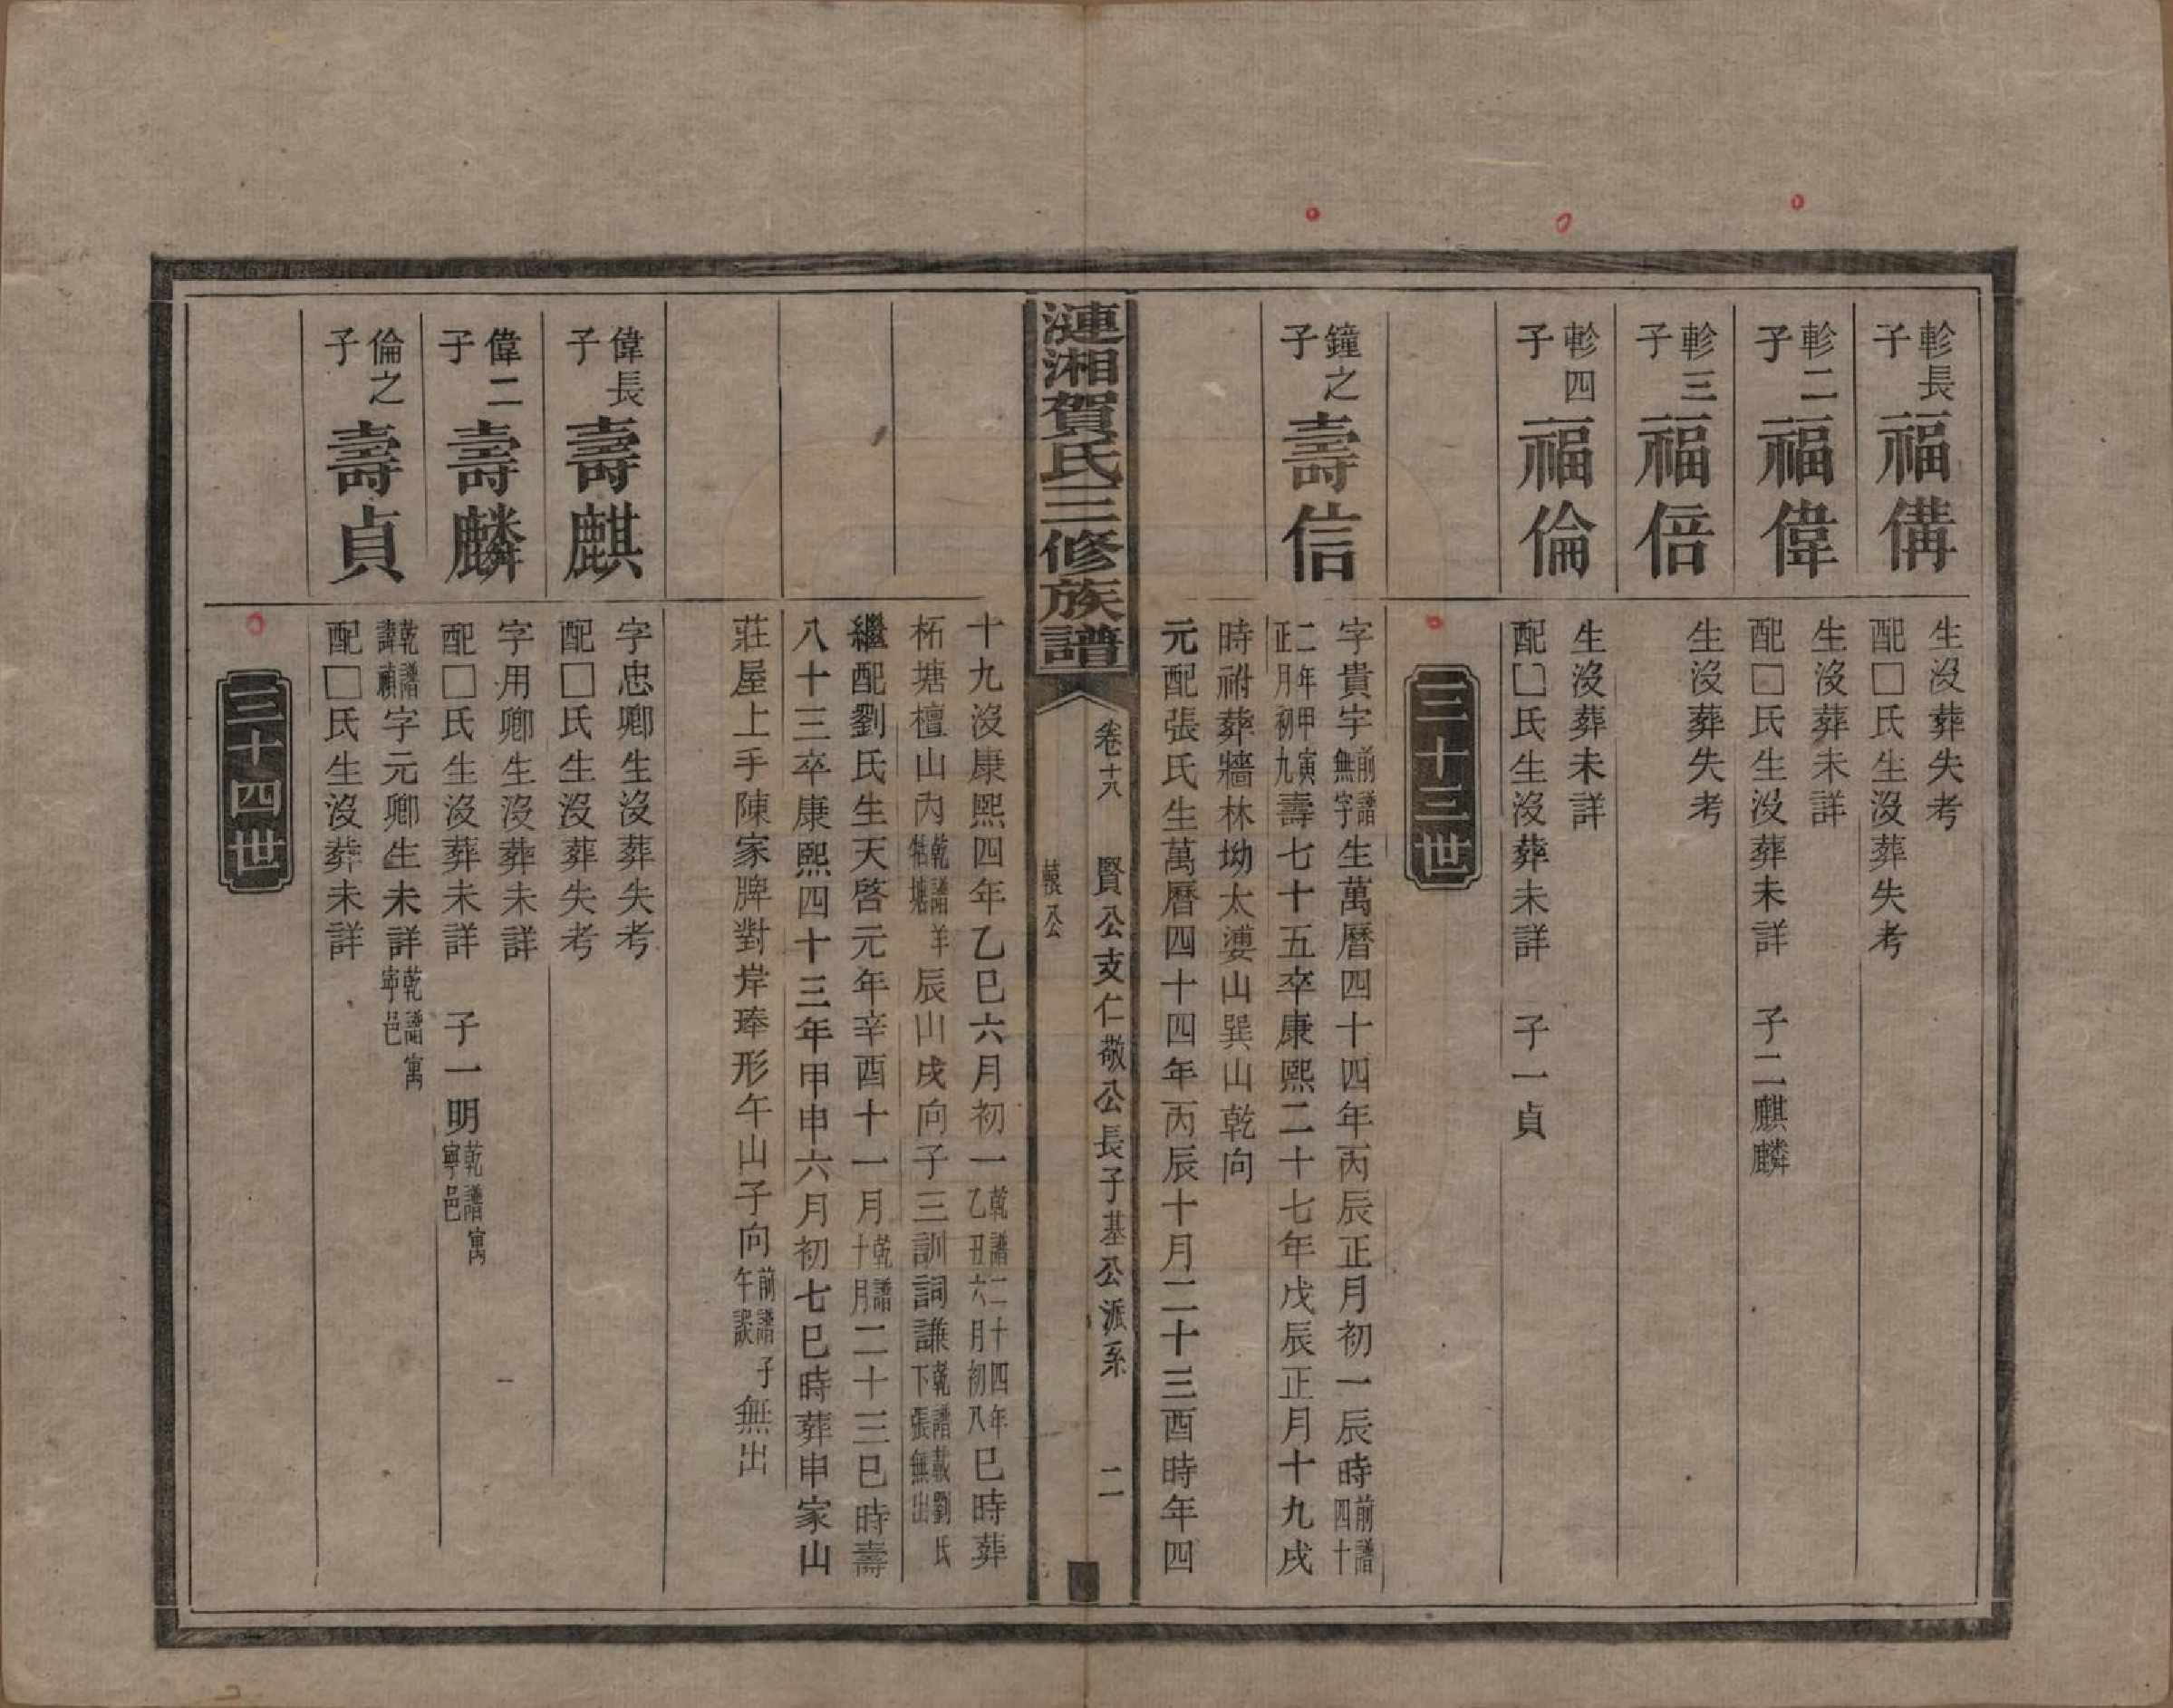 軫長子
福備
生沒葬失考
配□氏生沒葬失考
軫二子
福偉
生沒葬未詳
配□氏生沒葬未詳　子二麒麟
軫三子
福倍
生沒葬失考
軫四子
福倫
生沒葬未詳
配□氏生沒葬未詳　子一貞
三十三世
鐘之子
壽信
字貴宇前譜無字生萬曆四十四年丙辰正月初一辰時前譜四十
二年甲寅正月初九壽七十五卒康熙二十七年戊辰正月十九戌
時祔葬牆林坳太婆山巽山乾向
元配張氏生萬曆四十四年丙辰十月二十三酉時年四
漣湘賀氏三修族譜
卷十八
賢公支仁敬公長子基公派系
二
公
十九沒康熙四年乙巳六月初一乾譜二十四年乙丑六月初八巳時葬
柘塘檀山內乾譜羊牯塘辰山戌向子三訓詞謙乾譜載劉氏下張無出
繼配劉氏生天啓元年辛酉十一月乾譜十月二十三巳時壽
八十三卒康熙四十三年甲申六月初七巳時葬申家山
莊屋上手陳家牌對岸琫形午山子向前譜子午誤無出
偉長子
壽麒
字忠卿生沒葬失考
配□氏生沒葬失考
偉二子
壽麟
字用卿生沒葬未詳
配□氏生沒葬未詳　子一明乾譜寓寧邑
倫之子
壽貞
乾譜諱禎字元卿生未詳乾譜寓寧邑
配□氏生沒葬未詳
三十四世